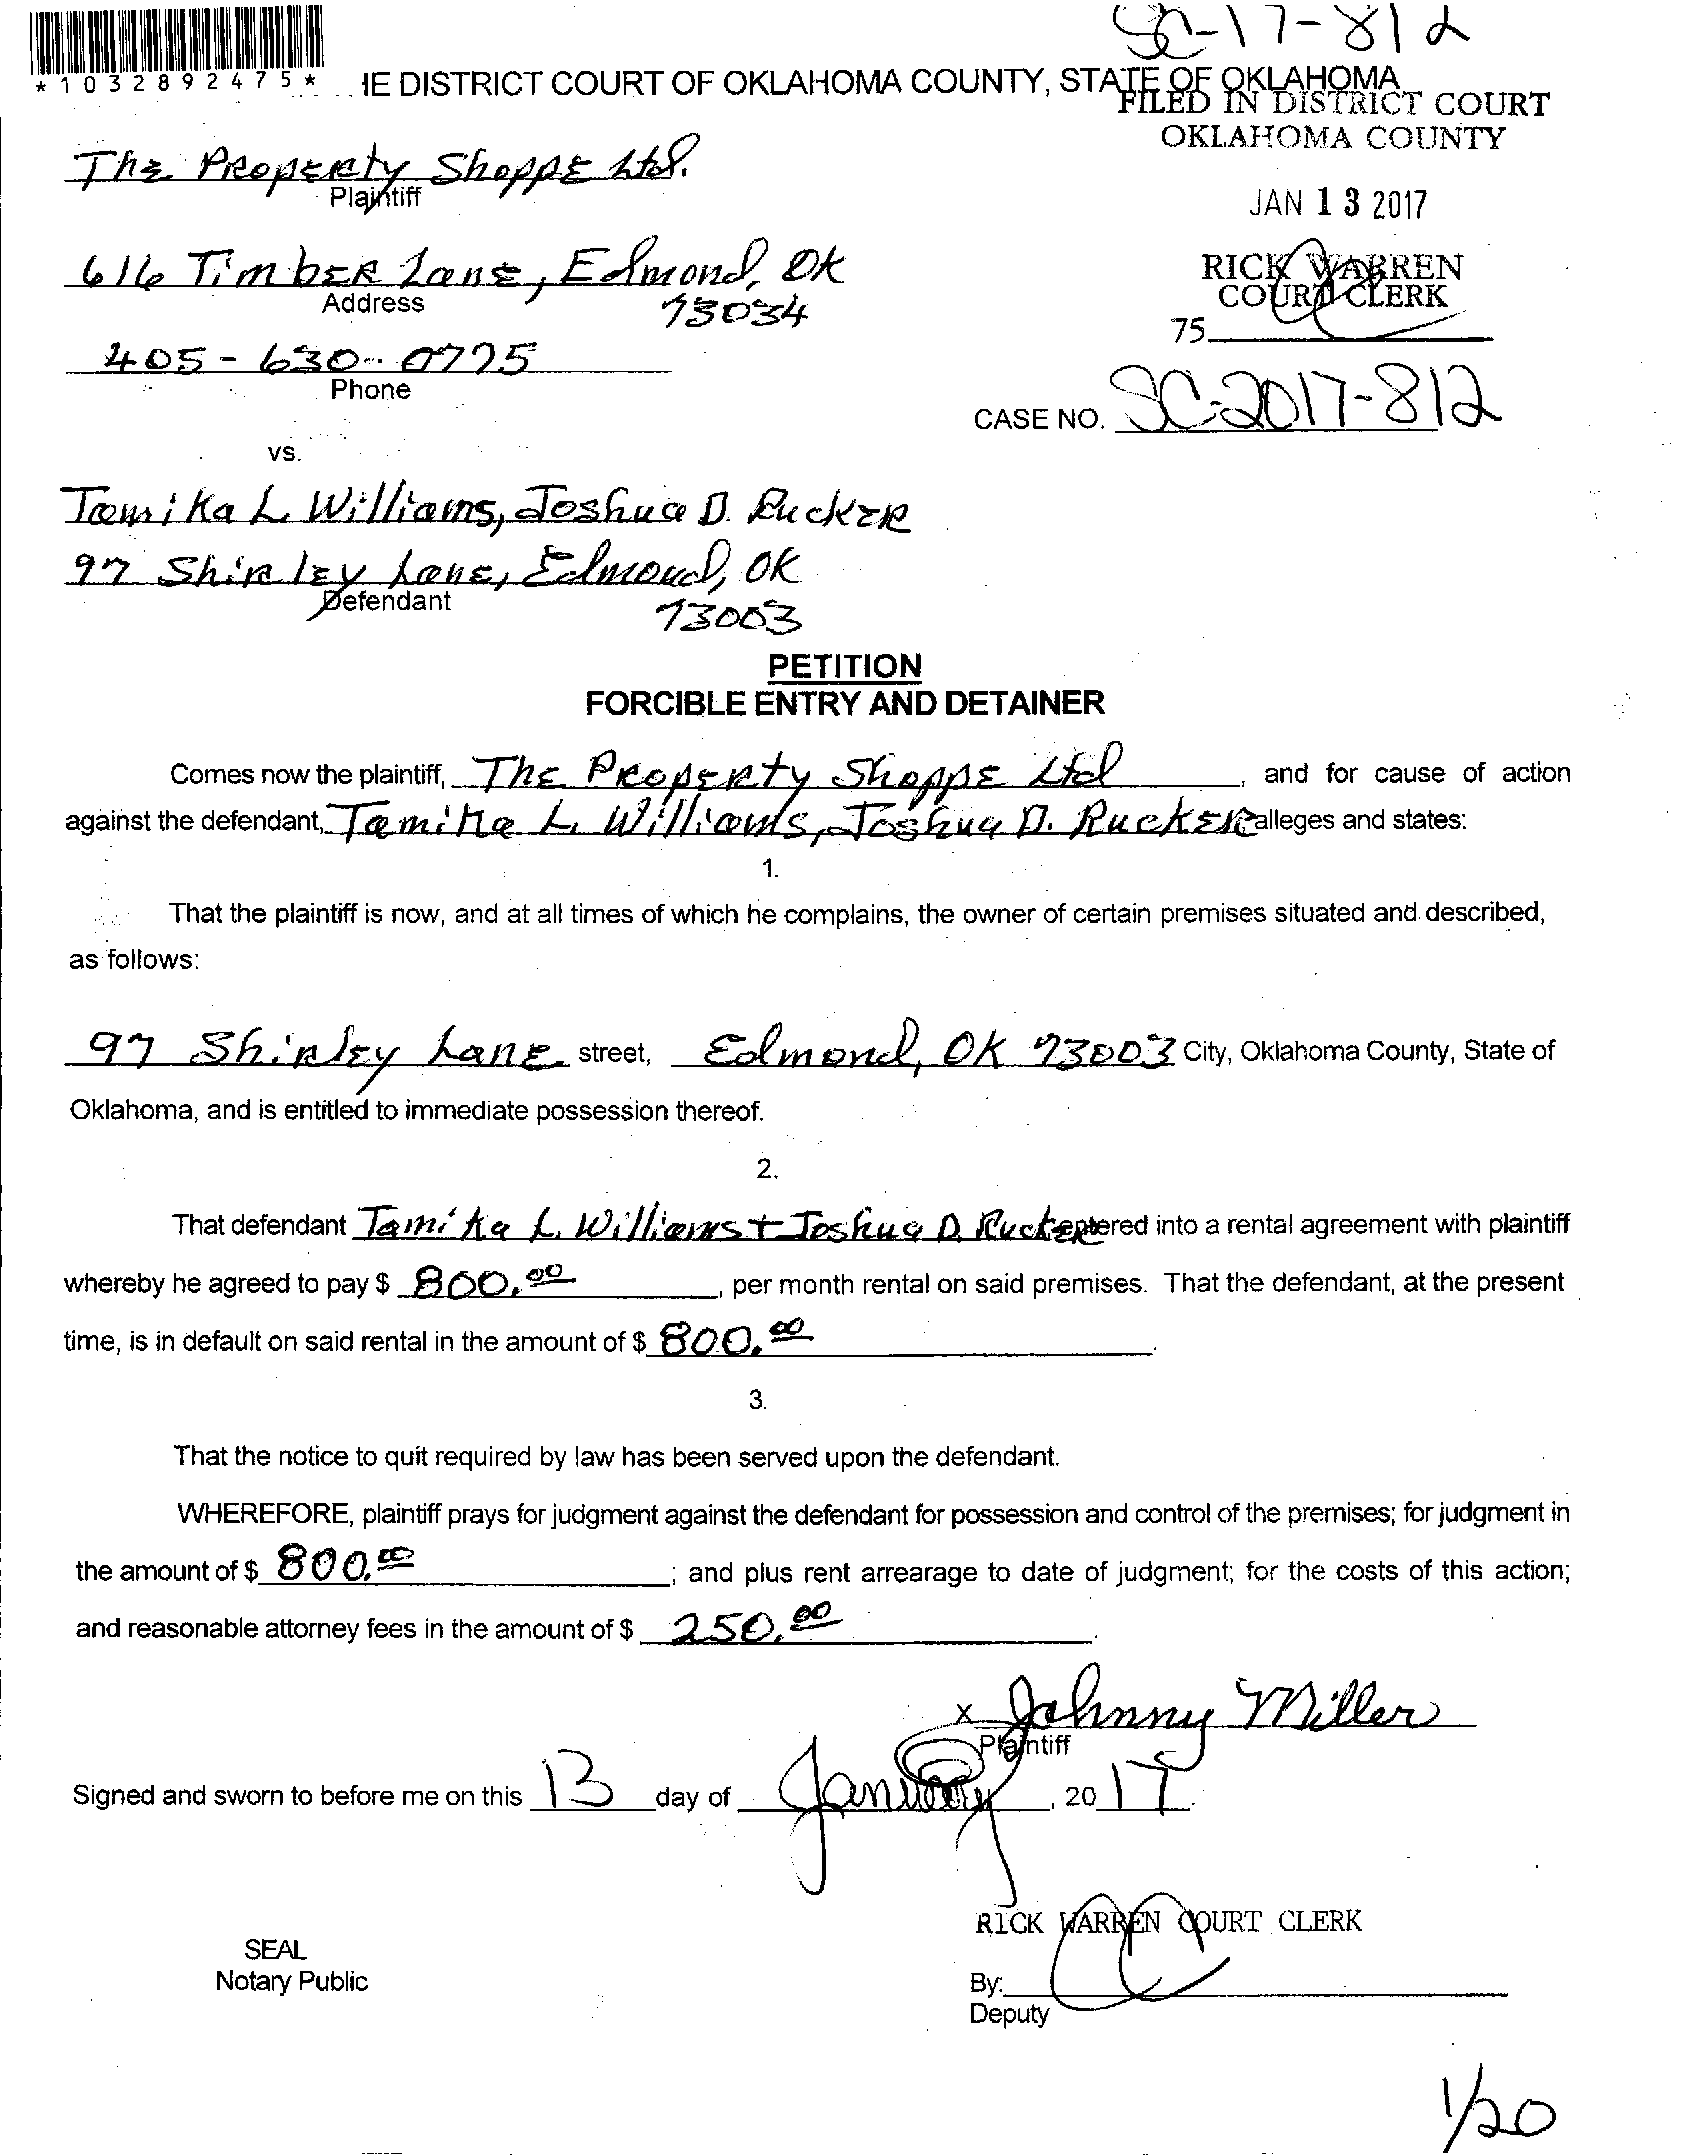 SC-17-812
*1032892475*
HE DISTRICT COURT OF OKLAHOMA COUNTY, STATE OF OKLAHOMA
FILED IN DISTRICT COURT
OKLAHOMA COUNTY
The Property Shoppe Ltd.
Plaintiff
JAN 13 2017
616 Timber Lane, Edmond, OK
Address
73034
RICK WARREN
COURT CLERK
75
405-630-0775
Phone
CASE NO. SC-2017-812
vs.
Tamika L Williams, Joshua D. Rucker
97 Shirley Lane, Edmond, OK
Defendant
73003
PETITION
FORCIBLE ENTRY AND DETAINER
Comes now the plaintiff, The Property Shoppe Ltd, and for cause of action
against the defendant, Tamika L. Williams, Joshua D. Rucker alleges and states:
1.
That the plaintiff is now, and at all times of which he complains, the owner of certain premises situated and described,
as follows:
97 Shirley Lane street, Edmond, OK 73003 City, Oklahoma County, State of
Oklahoma, and is entitled to immediate possession thereof.
2.
That defendant Tamika L. Williams + Joshua D. Rucker entered into a rental agreement with plaintiff
whereby he agreed to pay $ 800.00, per month rental on said premises. That the defendant, at the present
time, is in default on said rental in the amount of $ 800.00.
3.
That the notice to quit required by law has been served upon the defendant.
WHEREFORE, plaintiff prays for judgment against the defendant for possession and control of the premises; for judgment in
the amount of $ 800.00; and plus rent arrearage to date of judgment; for the costs of this action;
and reasonable attorney fees in the amount of $ 250.00.
x Johnny Miller
Plaintiff
Signed and sworn to before me on this 13 day of January, 2017.
RICK WARREN COURT CLERK
SEAL
Notary Public
By:
Deputy
1/20